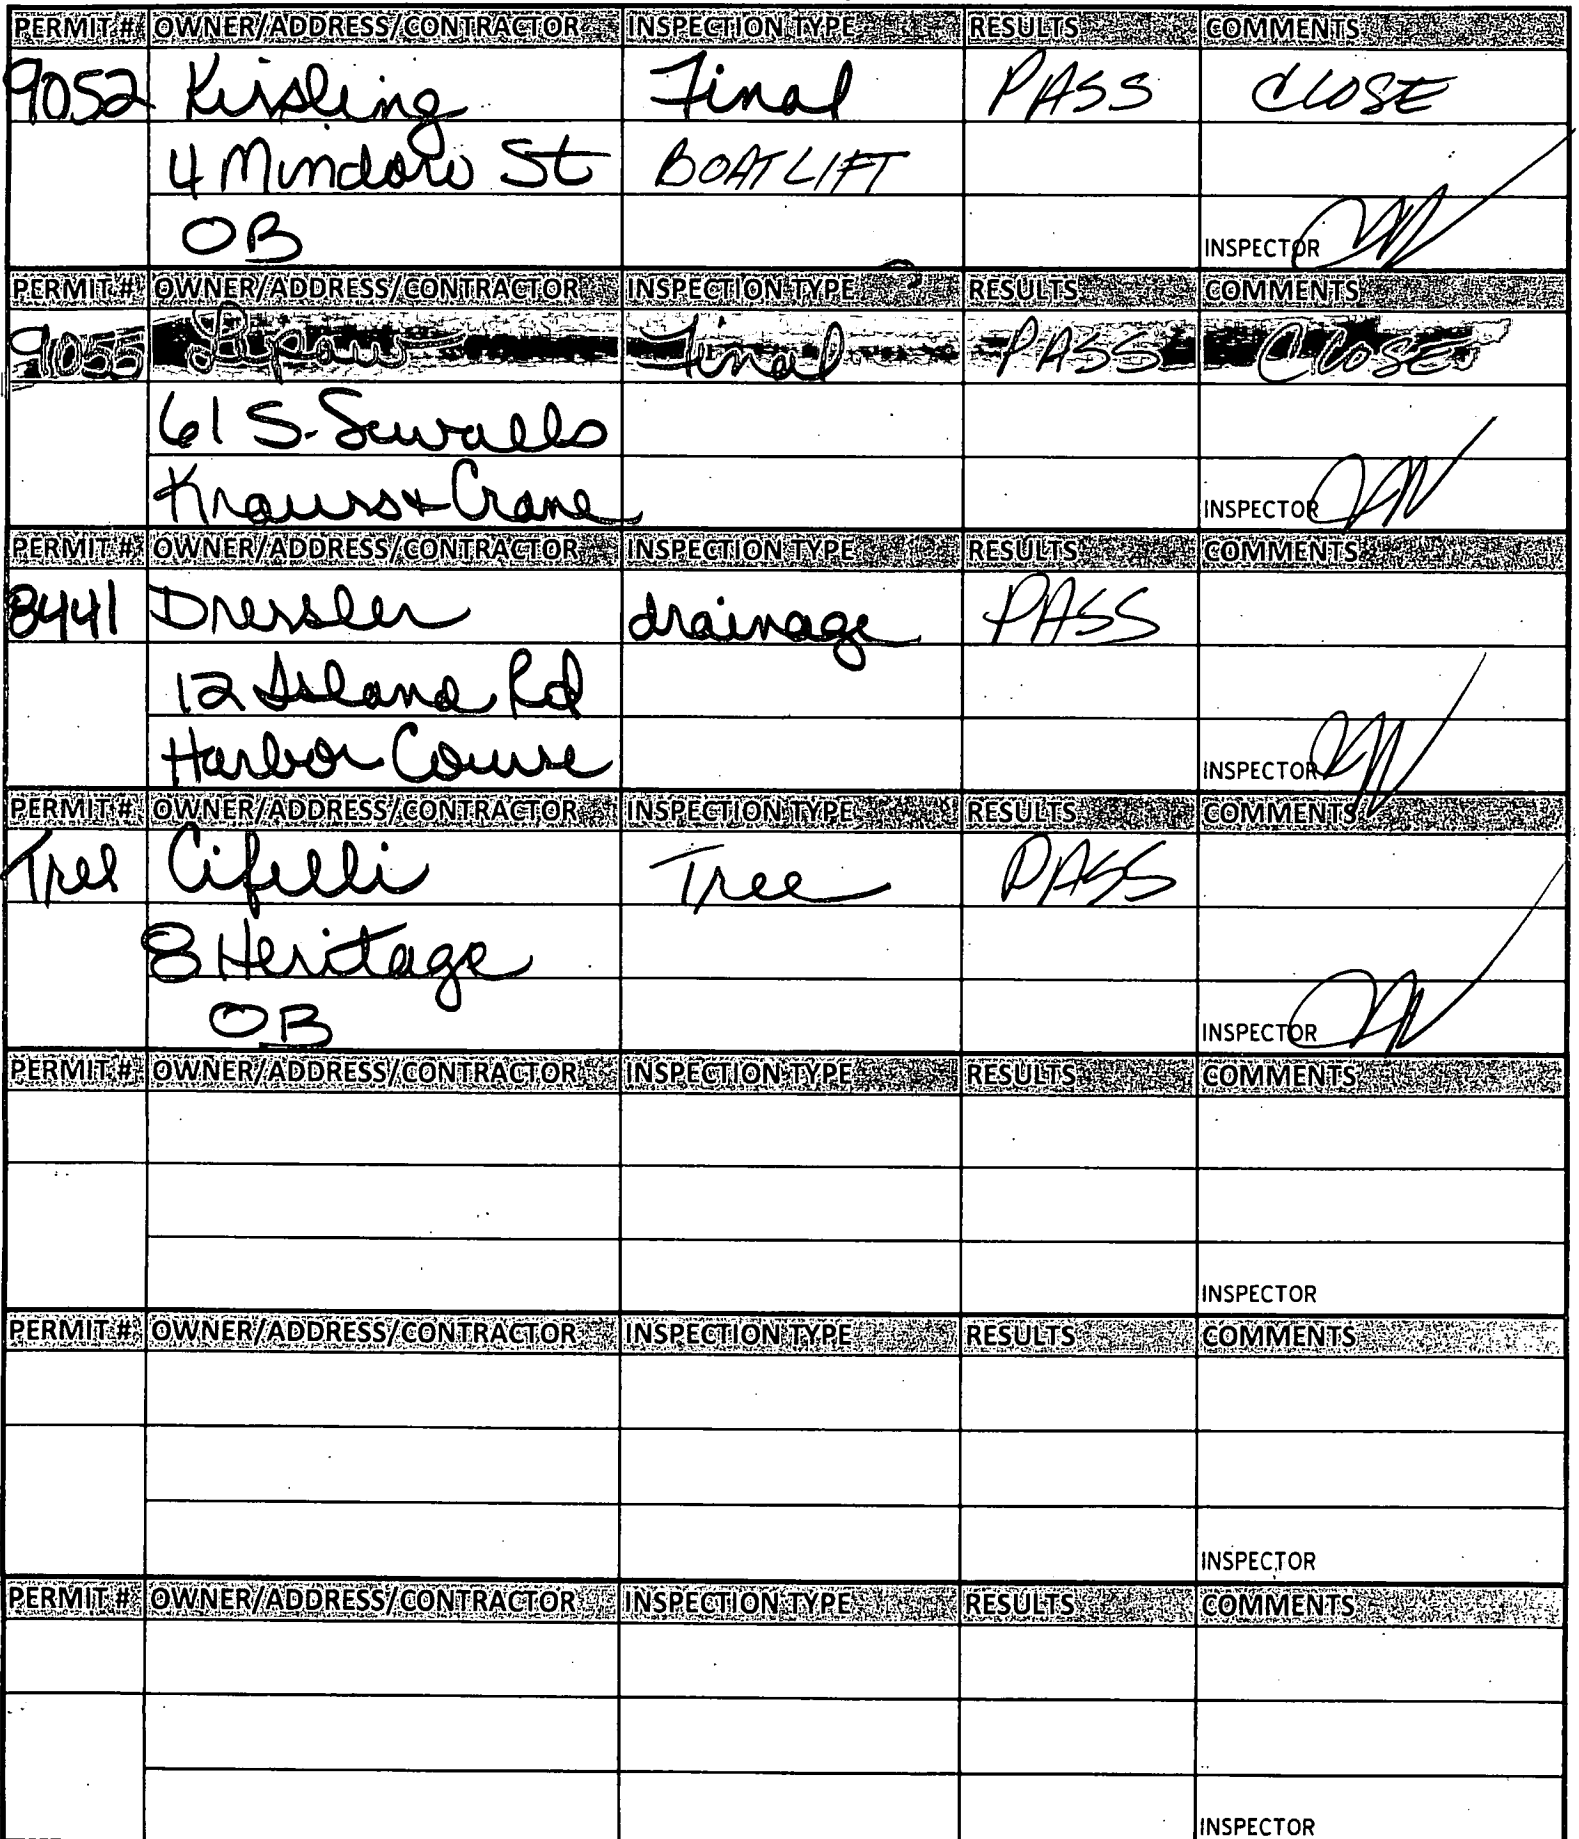 PERMIT # OWNER/ADDRESS/CONTRACTOR INSPECTION TYPE RESULTS COMMENTS
9052 Kissling Final PASS CLOSE
4 Mindoro St BOATLIFT
OB INSPECTOR
PERMIT # OWNER/ADDRESS/CONTRACTOR INSPECTION TYPE RESULTS COMMENTS
9055 Lipow Final PASS CLOSE
61 S. Sewalls
Krauss + Crane INSPECTOR
PERMIT # OWNER/ADDRESS/CONTRACTOR INSPECTION TYPE RESULTS COMMENTS
8441 Dressler drainage PASS
12 Island Rd
Harbor Course INSPECTOR
PERMIT # OWNER/ADDRESS/CONTRACTOR INSPECTION TYPE RESULTS COMMENTS
Tree Cifelli Tree PASS
8 Heritage
OB INSPECTOR
PERMIT # OWNER/ADDRESS/CONTRACTOR INSPECTION TYPE RESULTS COMMENTS
INSPECTOR
PERMIT # OWNER/ADDRESS/CONTRACTOR INSPECTION TYPE RESULTS COMMENTS
INSPECTOR
PERMIT # OWNER/ADDRESS/CONTRACTOR INSPECTION TYPE RESULTS COMMENTS
INSPECTOR